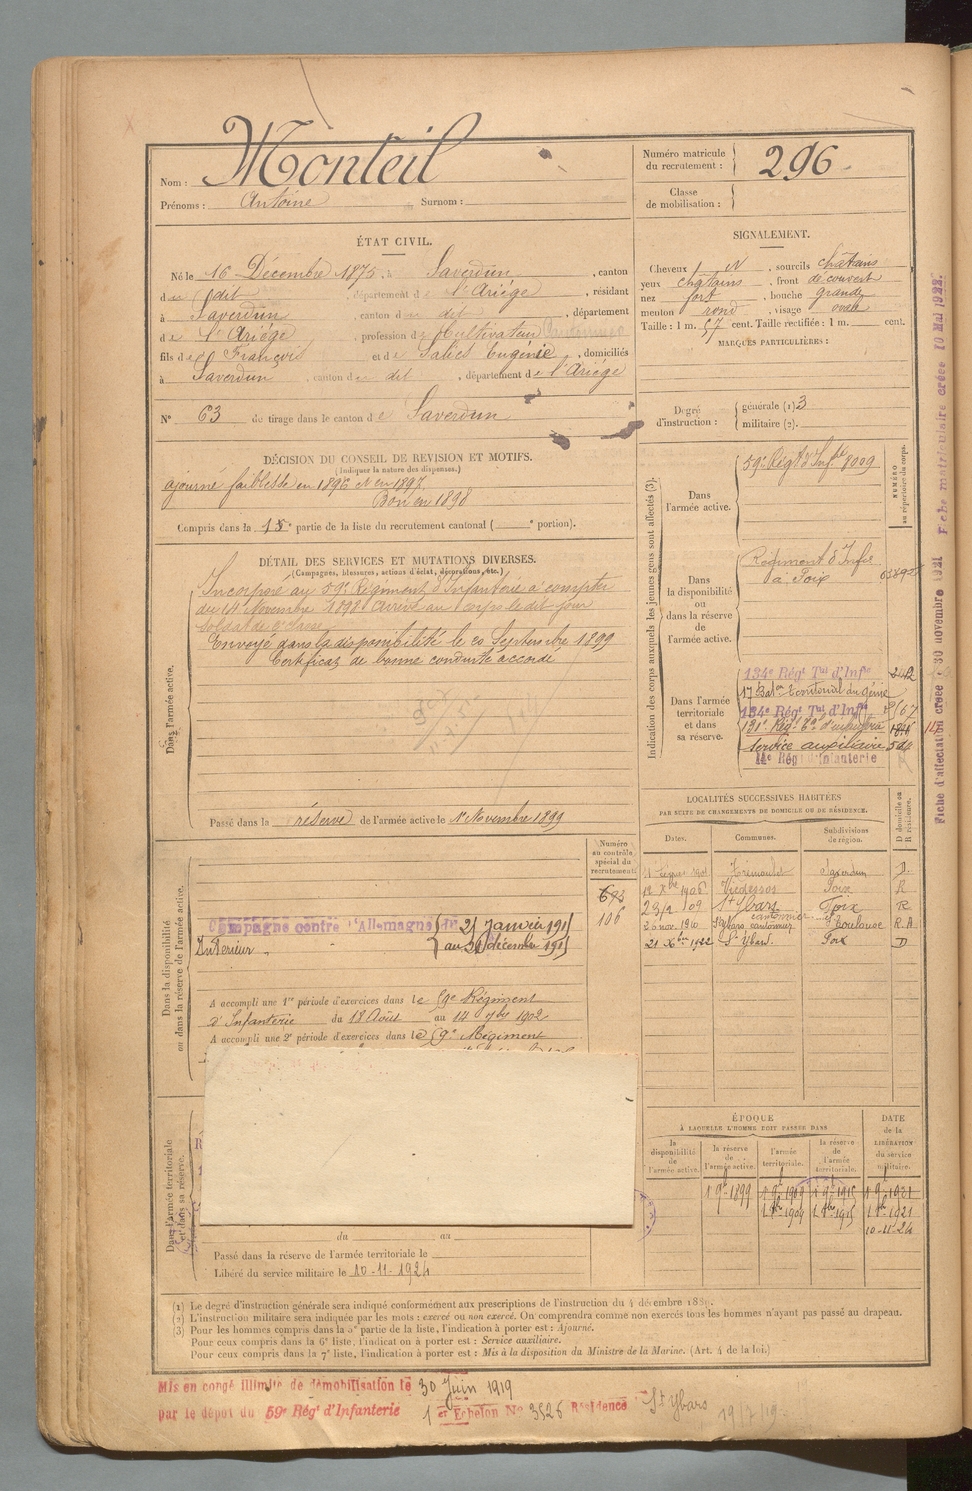 Nom : Monteil
Prénoms : Antoine Surnom :
Numéro matricule du recrutement : 296
Classe de mobilisation :
ÉTAT CIVIL.
Né le 16 Décembre 1875, à Saverdun, canton
de dit, département de l'Ariége, résidant
à Saverdun, canton du dit, département
de l'Ariége, profession de Cultivateur
fils de François et de Salies Eugénie, domiciliés
à Saverdun, canton de dit, département de l'Ariége
N° 63 de tirage dans le canton de Saverdun
SIGNALEMENT.
Cheveux N, sourcils chatains
yeux chatains, front découvert
nez fort, bouche grande
menton rond, visage ovale
Taille : 1 m. 57 cent. Taille rectifiée : 1 m. cent.
MARQUES PARTICULIÈRES :
Degré d'instruction : générale (1) 3
militaire (2).
DÉCISION DU CONSEIL DE REVISION ET MOTIFS.
(Indiquer la nature des dispenses.)
ajourné faiblesse en 1896 et en 1897.
Bon en 1898
Compris dans la 1re partie de la liste du recrutement cantonal ( e portion).
DÉTAIL DES SERVICES ET MUTATIONS DIVERSES.
(Campagnes, blessures, actions d'éclat, décorations, etc.)
Dans l'armée active.
Incorporé au 59e Régiment d'Infanterie à compter
du 14 Novembre 1898 Arrivé au Corps le dit jour
soldat de 2e classe
Envoyé dans la disponibilité le 20 Septembre 1899
Certificat de bonne conduite accordé
Passé dans la réserve de l'armée active le 1er Novembre 1899
Indication des corps auxquels les jeunes gens sont affectés (3).
NUMÉRO au répertoire du corps.
Dans l'armée active.
59e Régt d'Infie 8009
Dans la disponibilité ou dans la réserve de l'armée active.
Régiment d'Infie
à Foix
Dans l'armée territoriale et dans sa réserve.
134e Régt Tal d'Infie
17 Baton territorial du génie
134e Régt Tal d'Infie
131e Régt Tal d'infanterie
Service auxiliaire
14e Régt d'Infanterie
Fiche d'affectation créée 30 novembre 1921
Fiche matriculaire créée 10 Mai 1922.
LOCALITÉS SUCCESSIVES HABITÉES
PAR SUITE DE CHANGEMENTS DE DOMICILE OU DE RÉSIDENCE.
Dates. Communes. Subdivisions de région. D domicile ou R résidence.
Trémoulet Saverdun D.
12 Xbre 1906 Vicdessos Foix R
23/2/09 St Ybars Foix R
26 nov. 1910 St Ybars cantonnier Toulouse R.A
21 Xbre 1922 St Ybars Foix D
Dans la disponibilité ou dans la réserve de l'armée active.
Numéro au contrôle spécial du recrutement.
693
106
Campagne contre l'Allemagne du 21 Janvier 191
Intérieur. au Décembre 191
A accompli une 1re période d'exercices dans le 59e Régiment
d'Infanterie du 18 Août au 14 7bre 1902
A accompli une 2e période d'exercices dans le 59e Régiment
Dans l'armée territoriale et dans sa réserve.
du au
Passé dans la réserve de l'armée territoriale le
Libéré du service militaire le 10-11-1924
ÉPOQUE
À LAQUELLE L'HOMME DOIT PASSER DANS
la disponibilité de l'armée active.
la réserve de l'armée active.
l'armée territoriale.
la réserve de l'armée territoriale.
DATE de la LIBÉRATION du service militaire.
1 9bre 1899 1 9bre 1909 1 9bre 1915 1 9bre 1921
1 8bre 1909 1 8bre 1915 1 8bre 1921
10-11-24
(1) Le degré d'instruction générale sera indiqué conformément aux prescriptions de l'instruction du 4 décembre 1889.
(2) L'instruction militaire sera indiquée par les mots : exercé ou non exercé. On comprendra comme non exercés tous les hommes n'ayant pas passé au drapeau.
(3) Pour les hommes compris dans la 5e partie de la liste, l'indication à porter est : Ajourné.
Pour ceux compris dans la 6e liste, l'indication à porter est : Service auxiliaire.
Pour ceux compris dans la 7e liste, l'indication à porter est : Mis à la disposition du Ministre de la Marine. (Art. 4 de la loi.)
Mis en congé illimité de démobilisation le 30 Juin 1919
par le dépôt du 59e Régt d'Infanterie 1er Echelon No 3526 Résidence St Ybars
19/7/19.